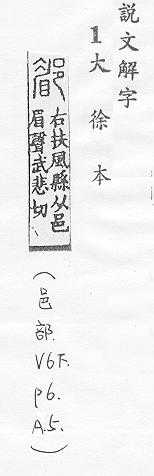 説文解字
1大徐本
郿 右扶風縣从邑
眉聲武悲切
(邑部.V6下.p6.A.5.)